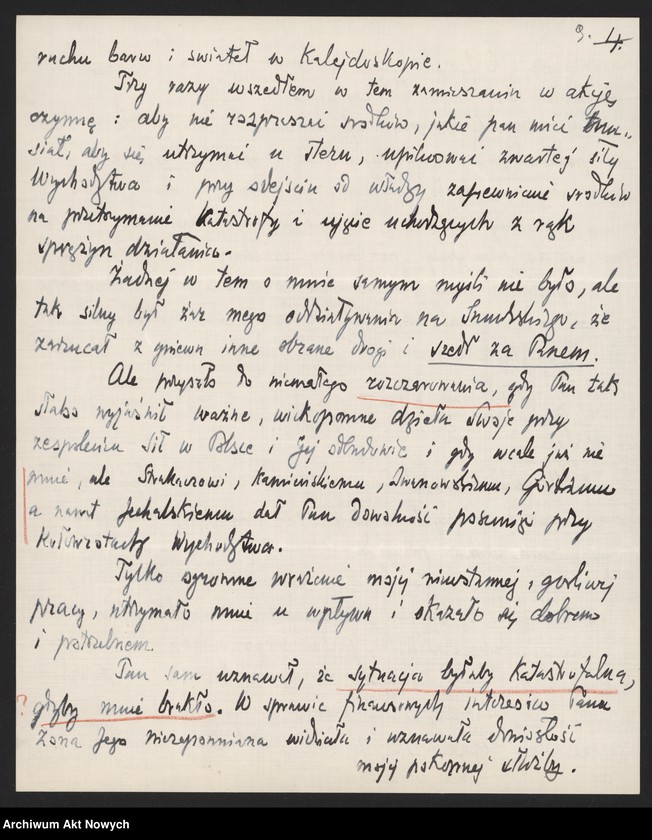 9. 4.
ruchu barw i świateł w Kalejdoskopie.
Trzy razy wszedłem w tem zamieszaniu w akcję
czynną: aby nie rozpraszać środków, jakie pan mieć mu-
siał, aby się utrzymać u steru, upilnować zwartej siły
Wychodźtwa i przy odejściu od władzy zapewnienie środków
na przetrzymanie Katastrofy i ujęcie uchodzących z rąk
sprężyn działania.
Żadnej w tem o mnie samym myśli nie było, ale
tak silny był żar mego oddziaływania na Smulskiego, że
zarzucał z gniewu inne obrane drogi i szedł za Panem.
Ale przyszło do niemałego rozczarowania, gdy Pan tak
słabo wyjaśnił ważne, wiekopomne dzieła Swoje przy
zespoleniu sił w Polsce i Jej odbudowie i gdy wcale już nie
mnie, ale Strakaczowi, Kamińskiemu, Iwanowskiemu, Górskiemu
a nawet dał Pan dowolność posunięć przy
Kołowrotach Wychodźtwa.
Tylko ogromne wrażenie mojej nieustannej, gorliwej
pracy, utrzymało mnie u wpływu i okazało się dobrem
i potrzebnem.
Pan sam uznawał, że sytuacja byłaby Katastrofalna,
? gdyby mnie brakło. W sprawie finansowych interesów Pana
Żona Jego niezapomniana widziała i uznawała doniosłość
mojej pokornej służby.
Archiwum Akt Nowych